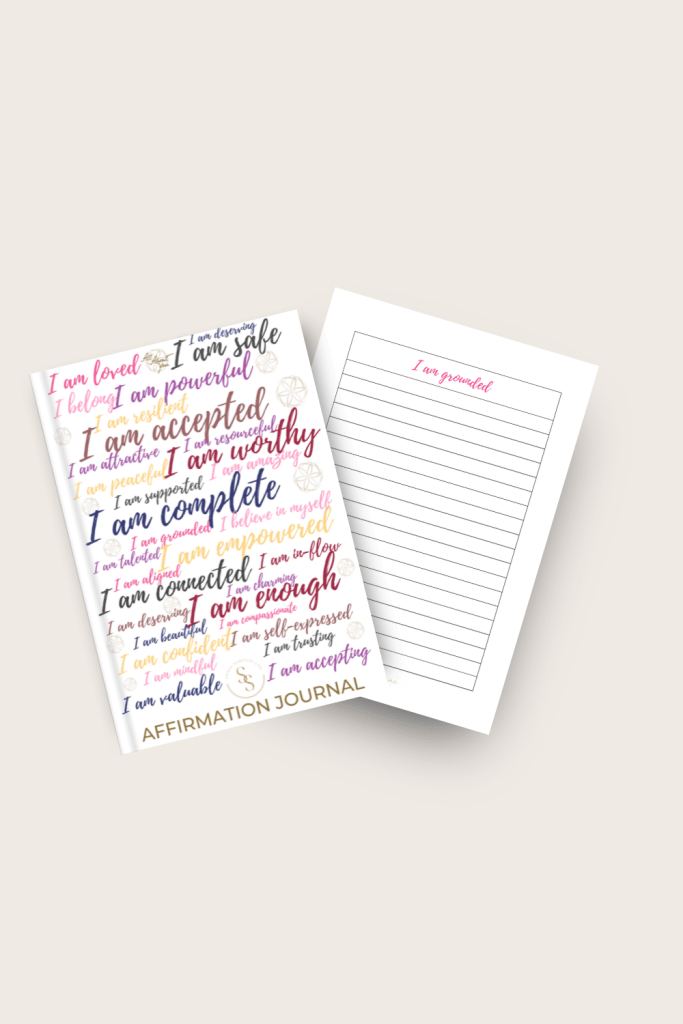 I am deserving
I am loved
I am safe
I belong
I am powerful
I am resilient
I am accepted
I am attractive
I am resourceful
I am worthy
I am peaceful
I am amazing
I am supported
I am complete
I am grounded
I believe in myself
I am talented
I am empowered
I am aligned
I am in-flow
I am connected
I am charming
I am deserving
I am enough
I am beautiful
I am compassionate
I am confident
I am self-expressed
I am mindful
I am trusting
I am valuable
I am accepting
AFFIRMATION JOURNAL
I am grounded